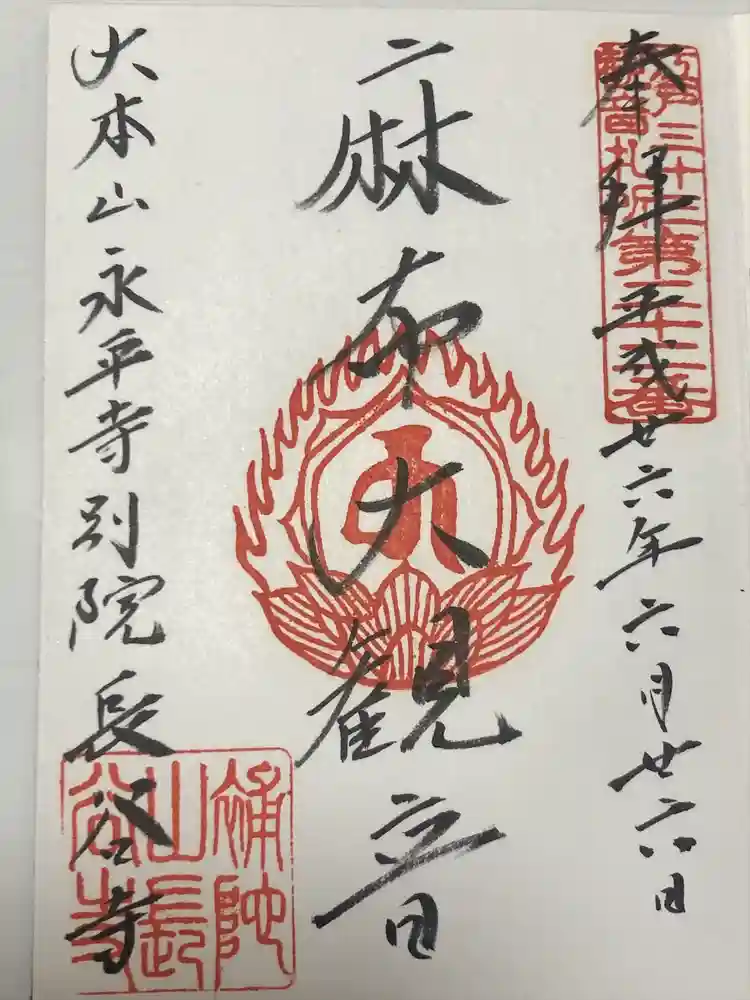 奉拝 平成廿六年六月廿六日
江戸三十三観音札所第二十二番
麻布大観音
大本山永平寺別院長谷寺
補陀山長谷寺